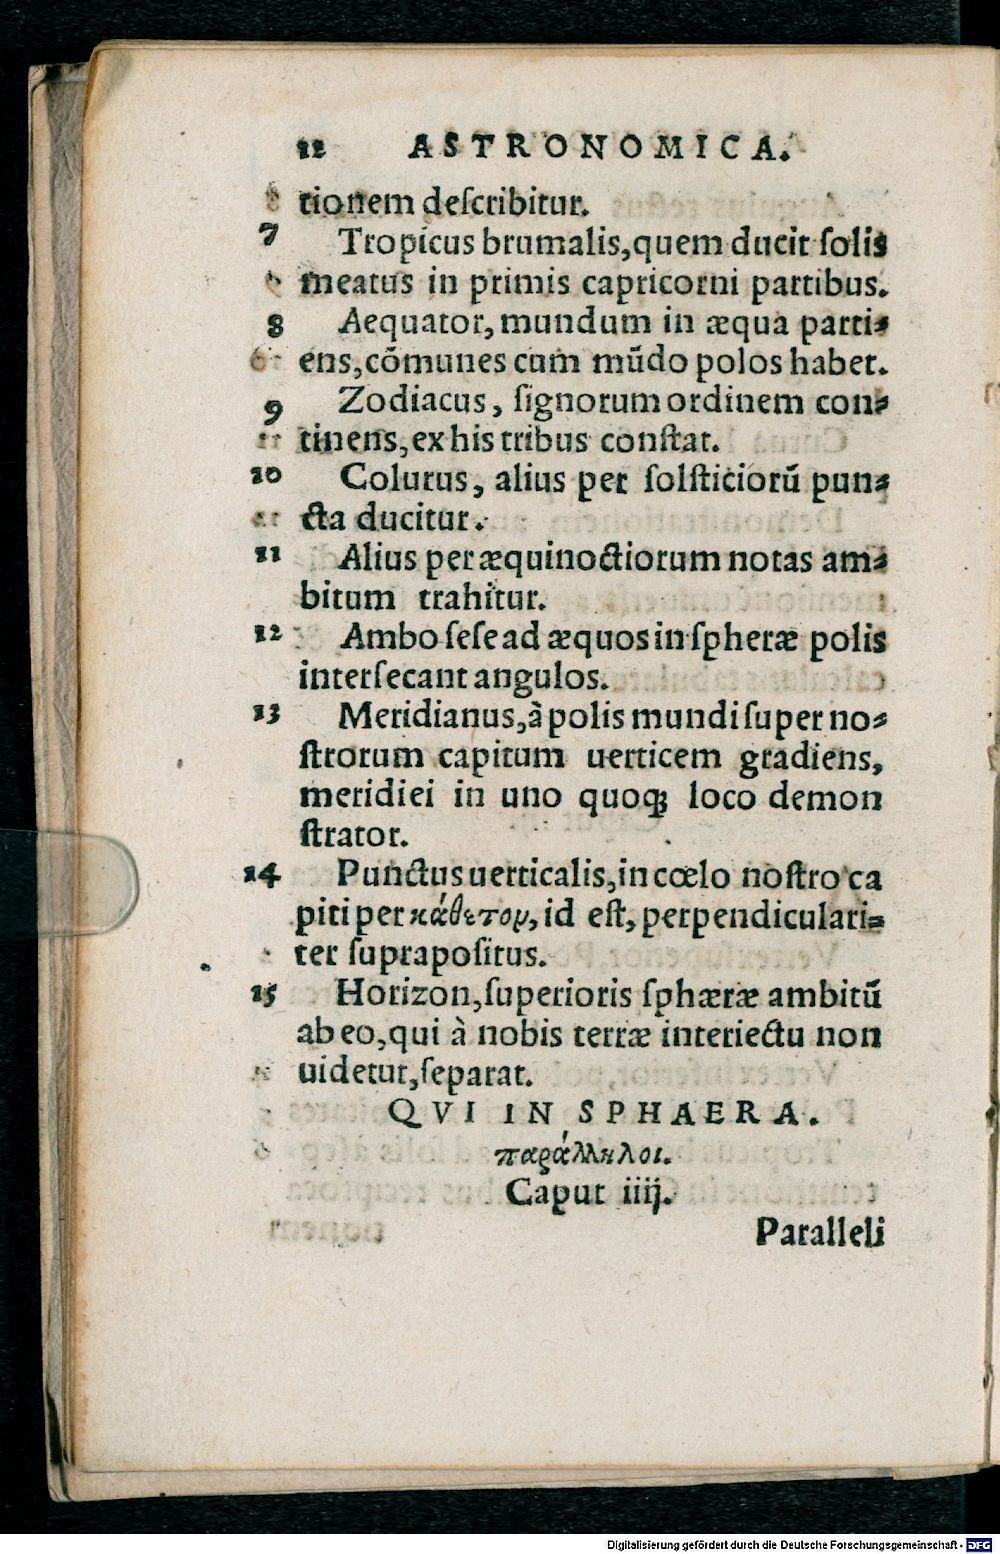 12 ASTRONOMICA.
tionem deſcribitur.
7 Tropicus brumalis, quem ducit ſolis
meatus in primis capricorni partibus.
8 Aequator, mundum in æqua parti-
ens, cõmunes cum mũdo polos habet.
9 Zodiacus, ſignorum ordinem con-
tinens, ex his tribus conſtat.
10 Colurus, alius per ſolſticiorũ pun-
cta ducitur.
11 Alius per æquinoctiorum notas am-
bitum trahitur.
12 Ambo ſeſe ad æquos in ſpheræ polis
interſecant angulos.
13 Meridianus, à polis mundi ſuper no-
ſtrorum capitum uerticem gradiens,
meridiei in uno quoqꝫ loco demon
ſtrator.
14 Punctus uerticalis, in cœlo noſtro ca
piti per κάθετομ, id eſt, perpendiculari-
ter ſuprapoſitus.
15 Horizon, ſuperioris ſphæræ ambitũ
ab eo, qui à nobis terræ interiectu non
uidetur, ſeparat.
QVI IN SPHAERA.
παράλληλοι.
Caput iiij.
Paralleli
Digitalisierung gefördert durch die Deutsche Forschungsgemeinschaft - DFG